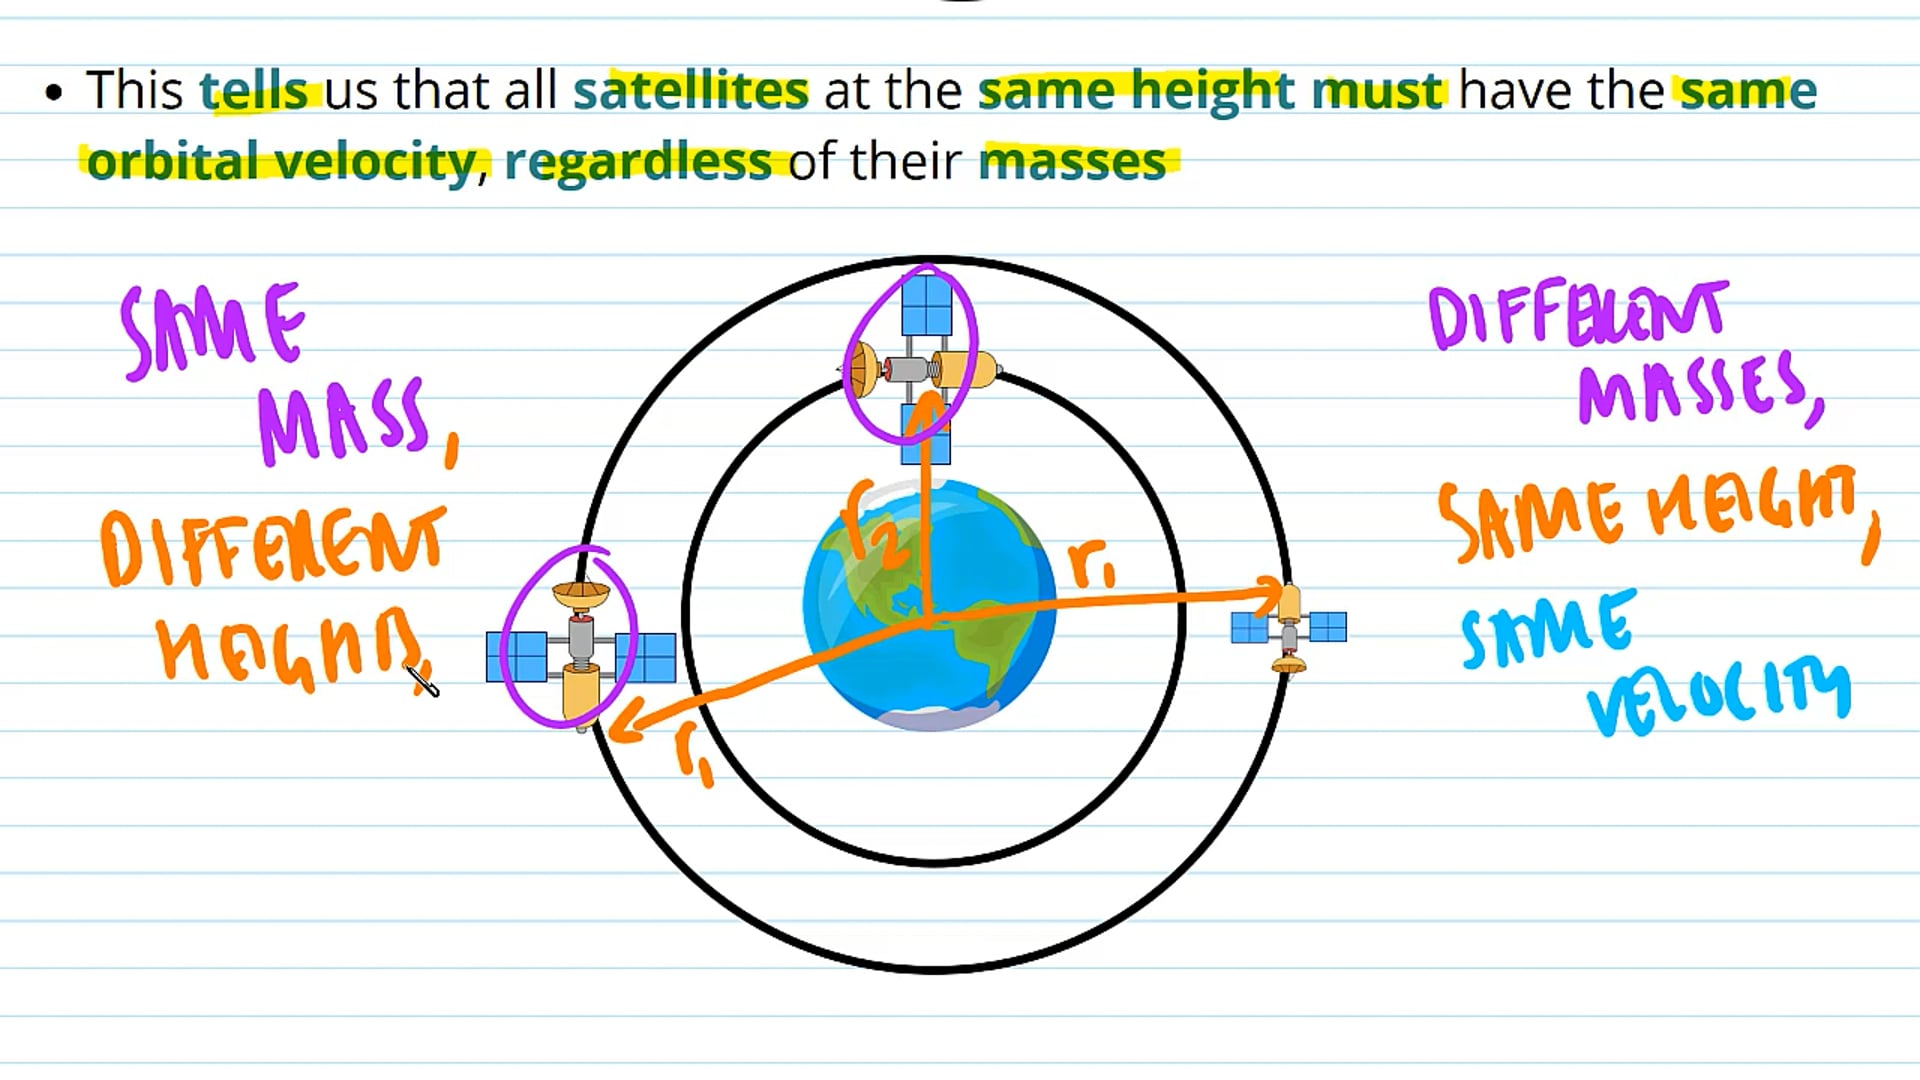 • This tells us that all satellites at the same height must have the same
orbital velocity, regardless of their masses
SAME
MASS,
DIFFERENT
HEIGHTS,
DIFFERENT
MASSES,
SAME HEIGHT,
SAME
VELOCITY
r2
r1
r1